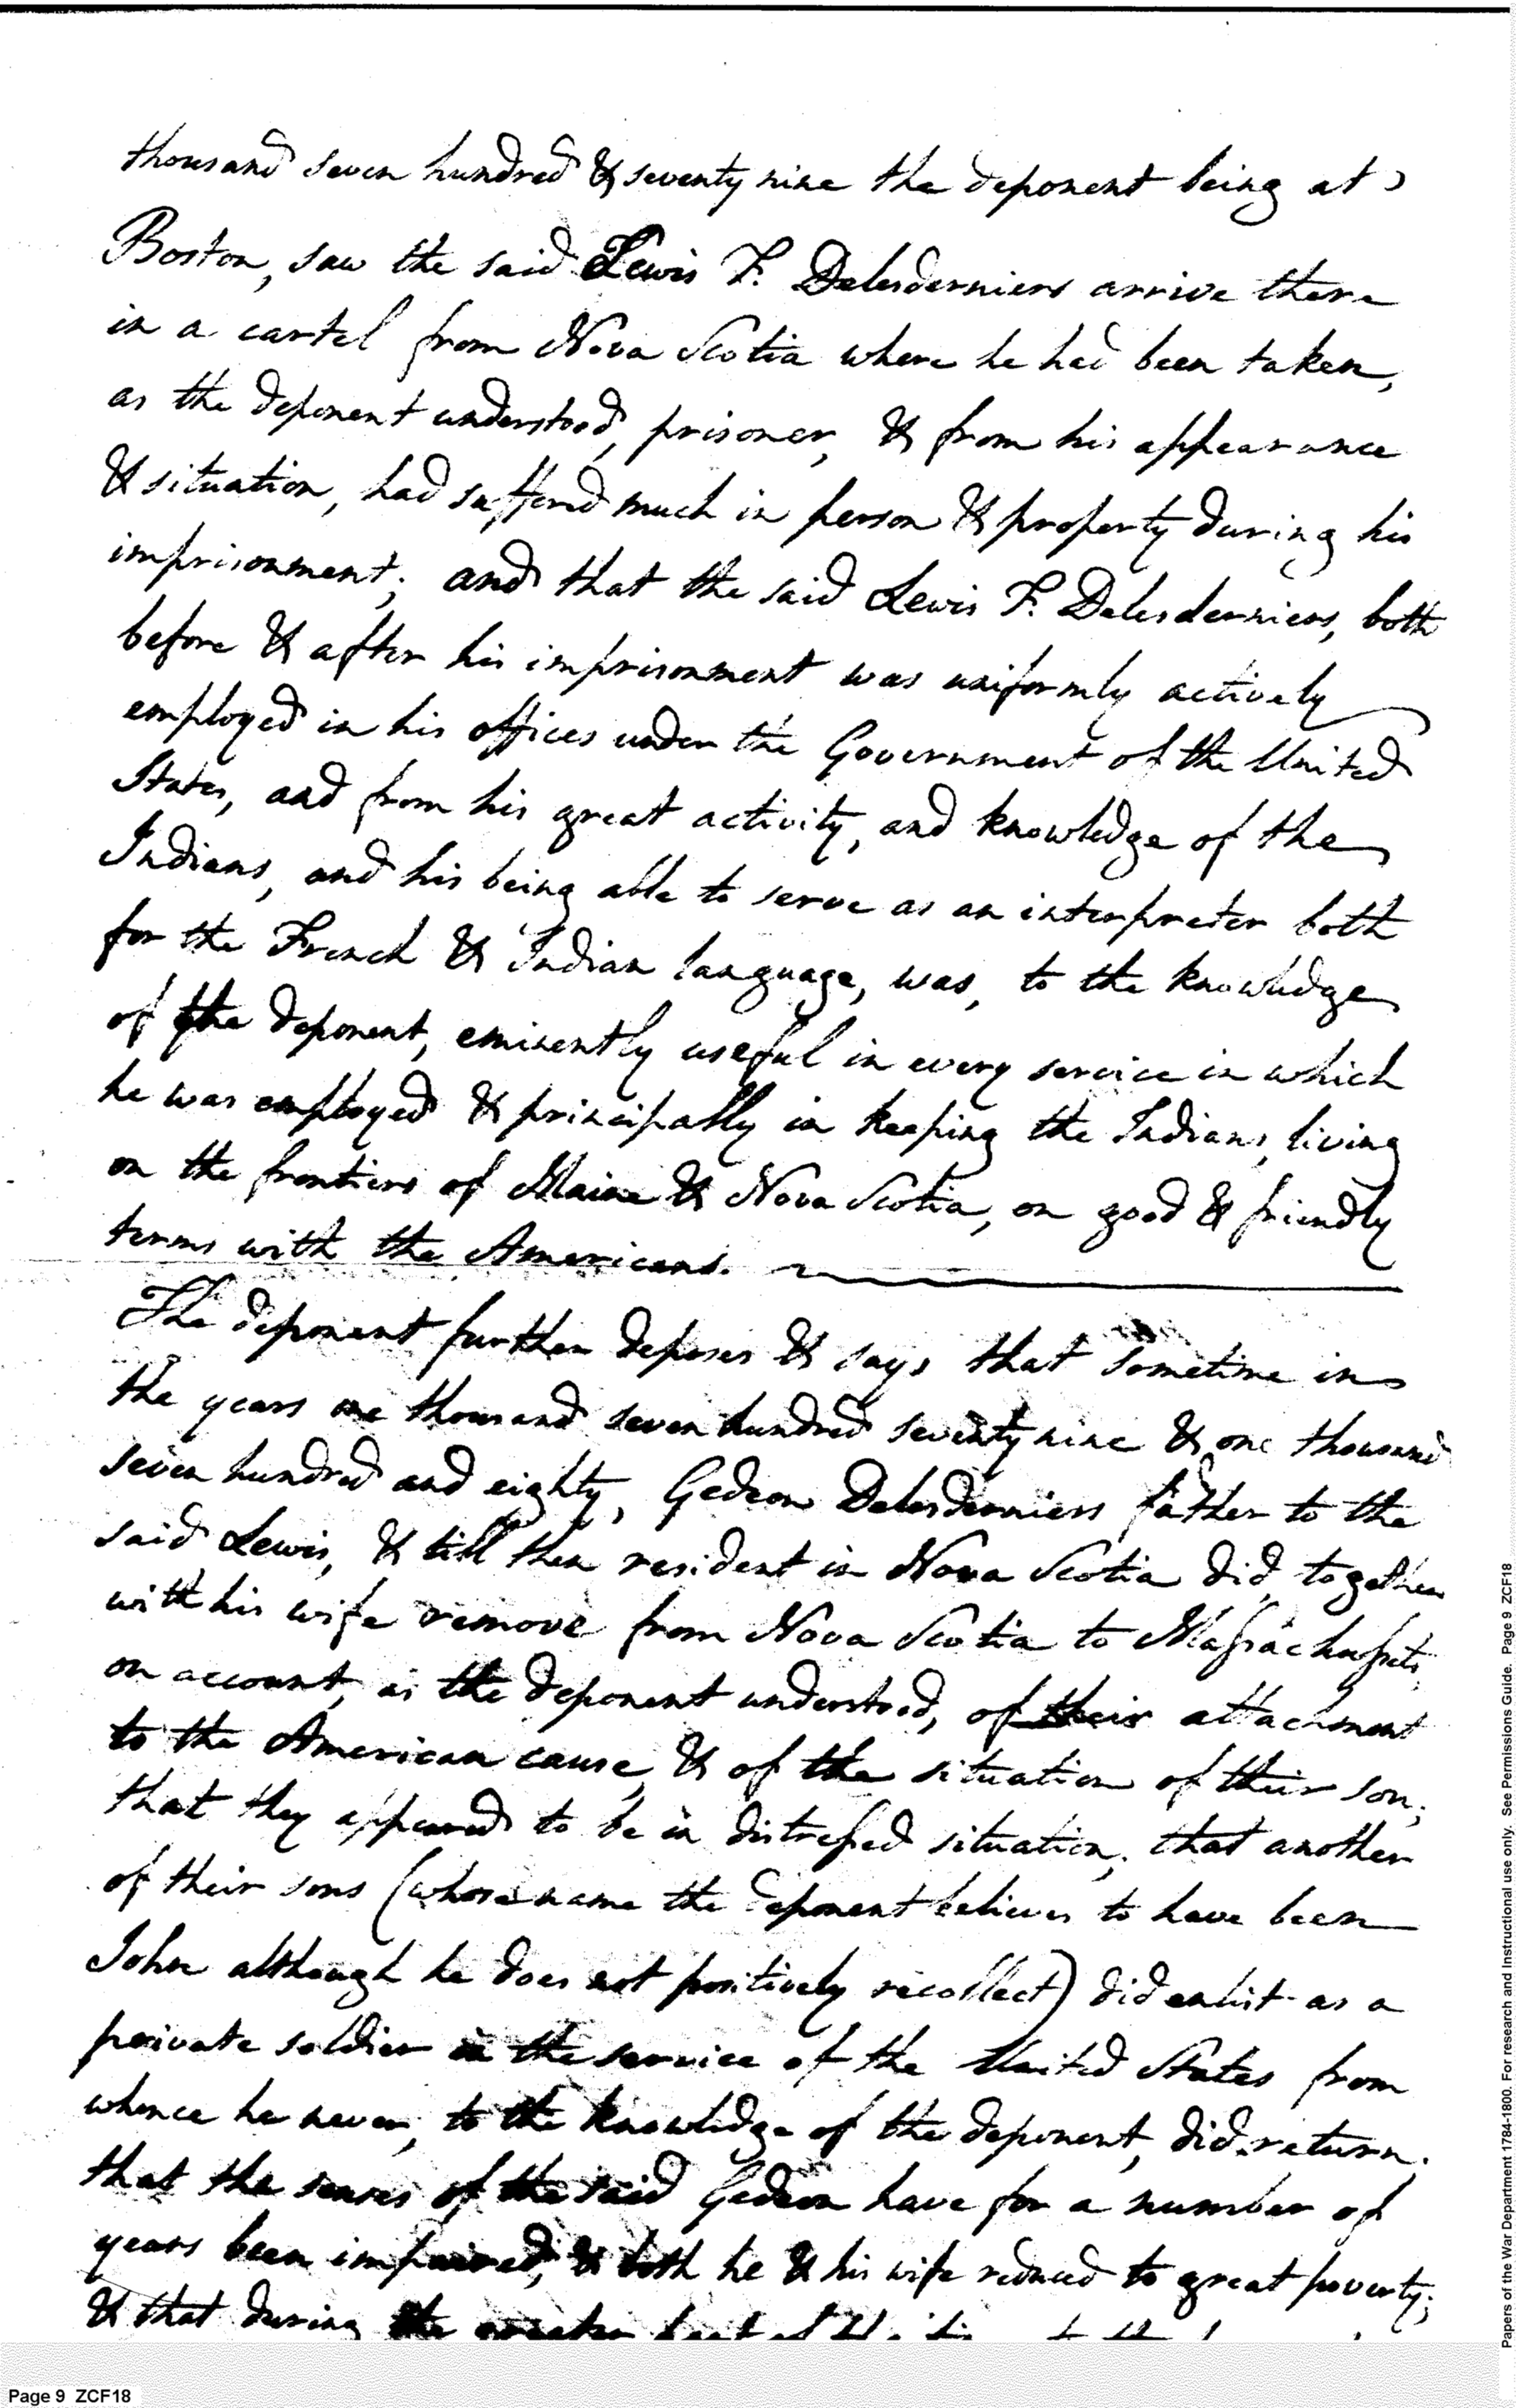 thousand seven hundred & seventy nine the deponent being at
Boston, saw the said Lewis F. Delesderniers arrive there
in a cartel from Nova Scotia where he had been taken,
as the deponent understood, prisoner, & from his appearance
& situation, had suffered much in person & property during his
imprisonment; and that the said Lewis F. Delesderniers, both
before & after his imprisonment was uniformly actively
employed in his offices under the Government of the United
States, and from his great activity, and knowledge of the
Indians, and his being able to serve as an interpreter both
for the French & Indian language, was, to the knowledge
of the deponent, eminently useful in every service in which
he was employed & principally in keeping the Indians, living
on the frontiers of Maine & Nova Scotia, on good & friendly
terms with the Americans.
The deponent further deposes & says that sometime in
the years one thousand seven hundred seventy nine & one thousand
seven hundred and eighty, Gedeon Delesderniers father to the
said Lewis, & till then resident in Nova Scotia did, together
with his wife remove from Nova Scotia to Massachusetts,
on account, as the deponent understood, of their attachment
to the American cause, & of the situation of their son;
that they appeared to be in distressed situation; that another
of their sons (whose name the deponent believes to have been
John although he does not positively recollect) did enlist as a
private soldier in the service of the United States from
whence he never, to the knowledge of the deponent, did return.
that the senses of the said Gedeon have for a number of
years been impaired, & both he & his wife reduced to great poverty;
& that during the greater part of
Papers of the War Department 1784-1800. For research and instructional use only. See Permissions Guide. Page 9 ZCF18
Page 9 ZCF18